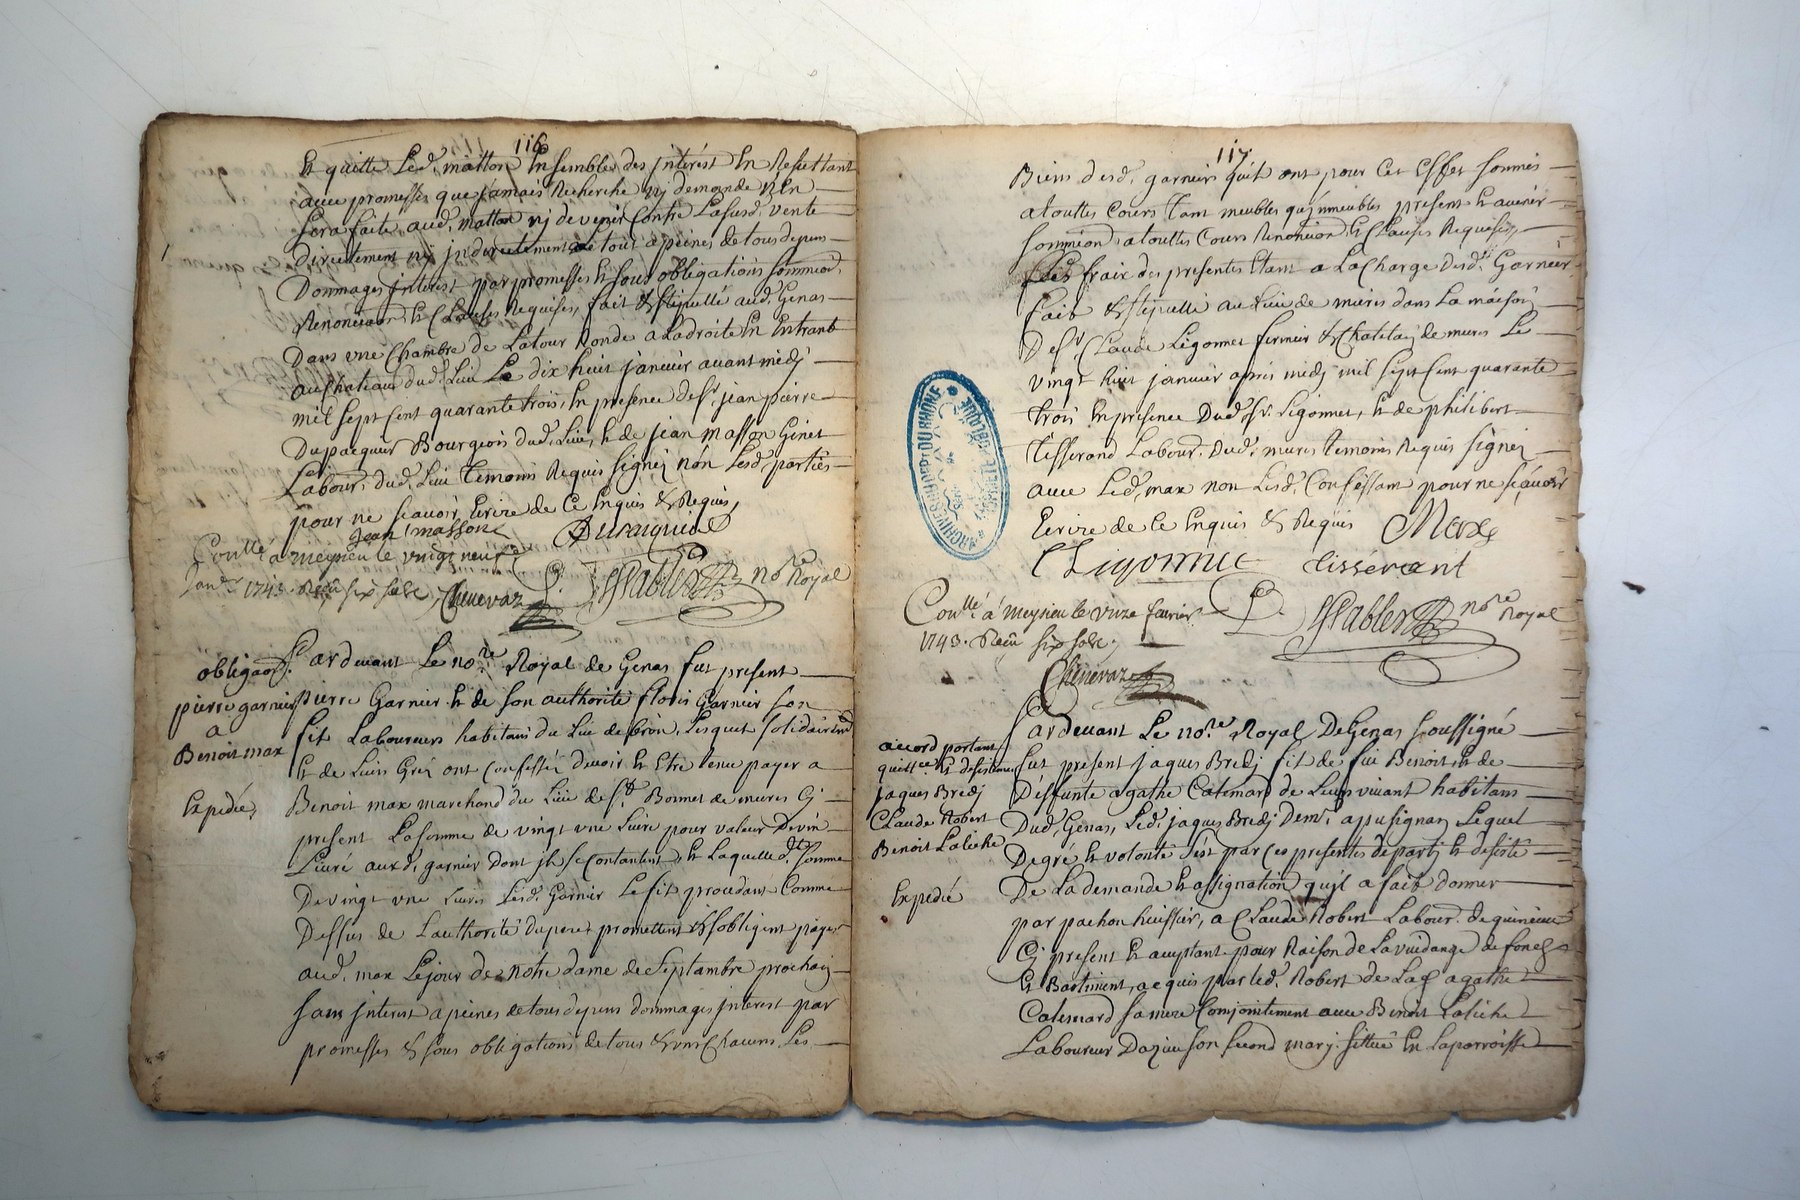 116
Et quitte Led. matton Ensembles des jnterest En Resultant
avec promesses que jamais Recherche nj demande n'En
sera faite aud. matton nj devenir Contre Lasusd. vente
directement nj jndirectement a tout apeines de tous depens
Dommages jnterest par promesses & sous obligations sommiond.
Renonciaon & Clauses Requises, fait & stipullé aud. Genas
Dans vne Chambre de Latour Ronde a Ladroite En Entrant
au Chateau dud. Lieu Le dix huit janvier avant midj
mil sept cent quarante trois, En presence de sr. jean pierre
Dupacquier Bourgeois dud. Lieu, & de jean masson Ginet
Labour. dud. Lieu Temoins Requis signéz nón Lesd. parties
pour ne scavoir Ecrire de Ce Enquis & Requis,
jean masson
Conllé a meyzieu le vingt neuf
Janer 1743. Reçu six sols, Chenevaz
P. JSablier nore Royal
obligaon
pierre garnier
a
Benoit max
Expedié,
Pardevant Le nore. Royal de Genas fut present
pierre Garnier & de son authorité floris Garnier son
fit Laboureurs habitans du Lieu de bron, Lesquet solidairemd
& de Leurs Gréz ont Confessés devoir & Etre tenu payer a
Benoit max marchand du Lieu de st. Bonnet de mures Cj
present Lasomme de vingt vne Livre pour valeur Devin
Livré auxd. garnier dont jls se Contantent & Laquelle dt. somme
De vingt vne Livres Lesd. Garnier Le fit procedant Comme
Dessus de Lauthorité dupere promettent & sobligent payer
aud. max Lejour de notre dame de septambre prochain
sans jnterest apeines de tous depens dommages jnterest par
promesses & sous obligations de tous & vn Chacuns Les
117
Biens desd. garniers quils ont pour Cet Effet soumis
atouttes Cours Tant meubles qu'jmmeubles present & avenir
sommiond. atouttes Cours Renonciaon & Clauses Requises,
Les fraix des presentes Etant a LaCharge desd. Garnier
fait & stipullé au Lieu de mures dans La maison
De sr. Claude Ligonnet fermier & Chatelain de mures Le
vingt huit janvier apres midj mil sept cent quarante
trois En presence Dud. sr. Ligonnet, & de philibert
Tisserand Labour. Dud. mures temoins Requis signéz
avec Led. max non Lesd. Confessant pour ne scavoir
Ecrire de Ce Enquis & Requis Max
CLigonnet tisserant
Conllé a meyzieu le vnze fevrier
1743. Reçu six sols,
Chenevaz
P. JSablier nore Royal
ARCHIVES DU DEPT DU RHONE
accord portant
quittce. & desisteme
jaques Bredj
Claude Robert
Benoit Laliche
Expedié
Pardevant Le nore. Royal De Genas soussigné
fut présent jaques Bredj fit de feu Benoit, & de
Déffunte agathe Catemard de Leurs vivant habitans
Dud. Genas, Led. jaques Bredj Demt. a pusignan Lequel
De gré & volonté s'est par Ces presentes departj & desisté
De La demande & assignation qu'jl a fait donner
par pachon huissier, a Claude Robert Labour. de quinieux
Cj present & acceptant pour Raison de La vuidange de fonds
& Bastiment, acquis par led. Robert de Lad. agathe
Catemard sa mere Conjointement avec Benoit Laliche
Laboureur Dazieu son second marj. sittué En Laparroisse